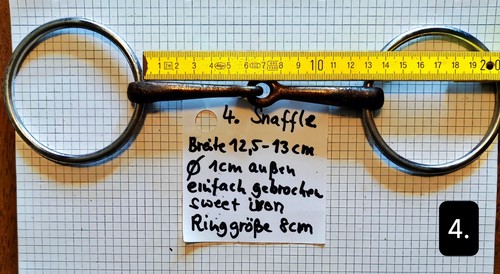 1 2 3 4 5 6 7 8 9 10 11 12 13 14 15 16 17 18 19 20
4. Snaffle
Breite 12,5-13cm
Ø 1cm außen
einfach gebrochen
sweet iron
Ringgröße 8cm
4.